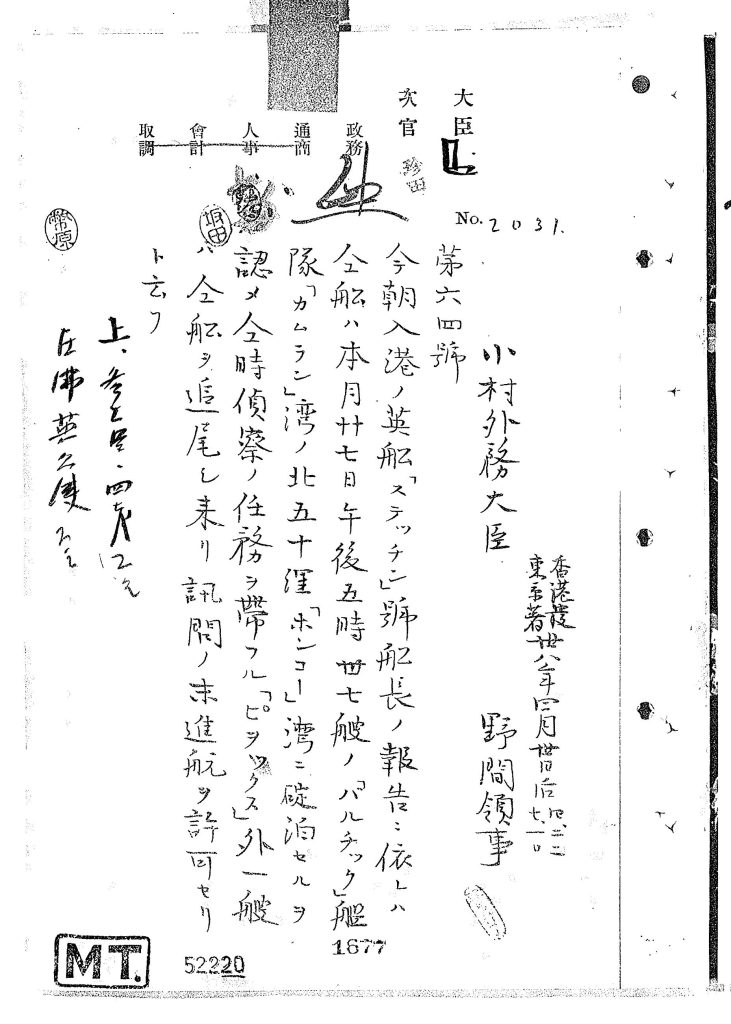 大臣
次官
珍田
政務
通商
人事
會計
取調
坂田
幣原
No. 2031.
香港發 卅八年四月卅日后四、二二
東京着 后七、一〇
小村外務大臣
野間領事
第六四號
今朝入港ノ英舩「ステッチン」號舩長ノ報告ニ依レハ
仝舩ハ本月廿七日午後五時卅七艘ノ「バルチック」艦
隊「カムラン」湾ノ北五十浬「ホンコー」湾ニ碇泊セルヲ
認メ仝時偵察ノ任務ヲ帶フル「ピヲックス」外一艘
ハ仝舩ヲ追尾シ来リ訊問ノ末進航ヲ許可セリ
ト云フ
在佛英公使
MT.
52220
1677